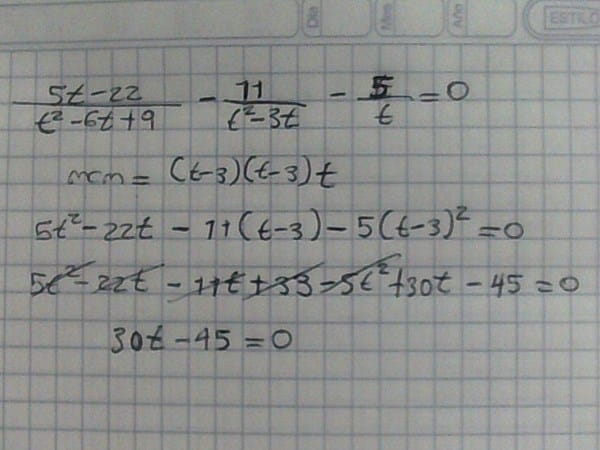 Dia Mes Año ESTILO
(5t-22)/(t²-6t+9) - 11/(t²-3t) - 5/t = 0
mcm = (t-3)(t-3)t
5t²-22t - 11(t-3) - 5(t-3)² = 0
5t²-22t - 11t+33-5t²+30t - 45 = 0
30t-45 = 0